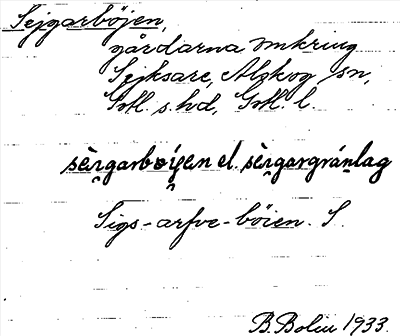 Sejgarböjen,
gårdarna omkring
Sejksare, Alskog, sn,
Gotl. s. hd, Gotl. l.
sèi̯garbøi̯en el. sèi̯gargránlag
Sigs-arfve-böien. S.
B. Bolin 1933.